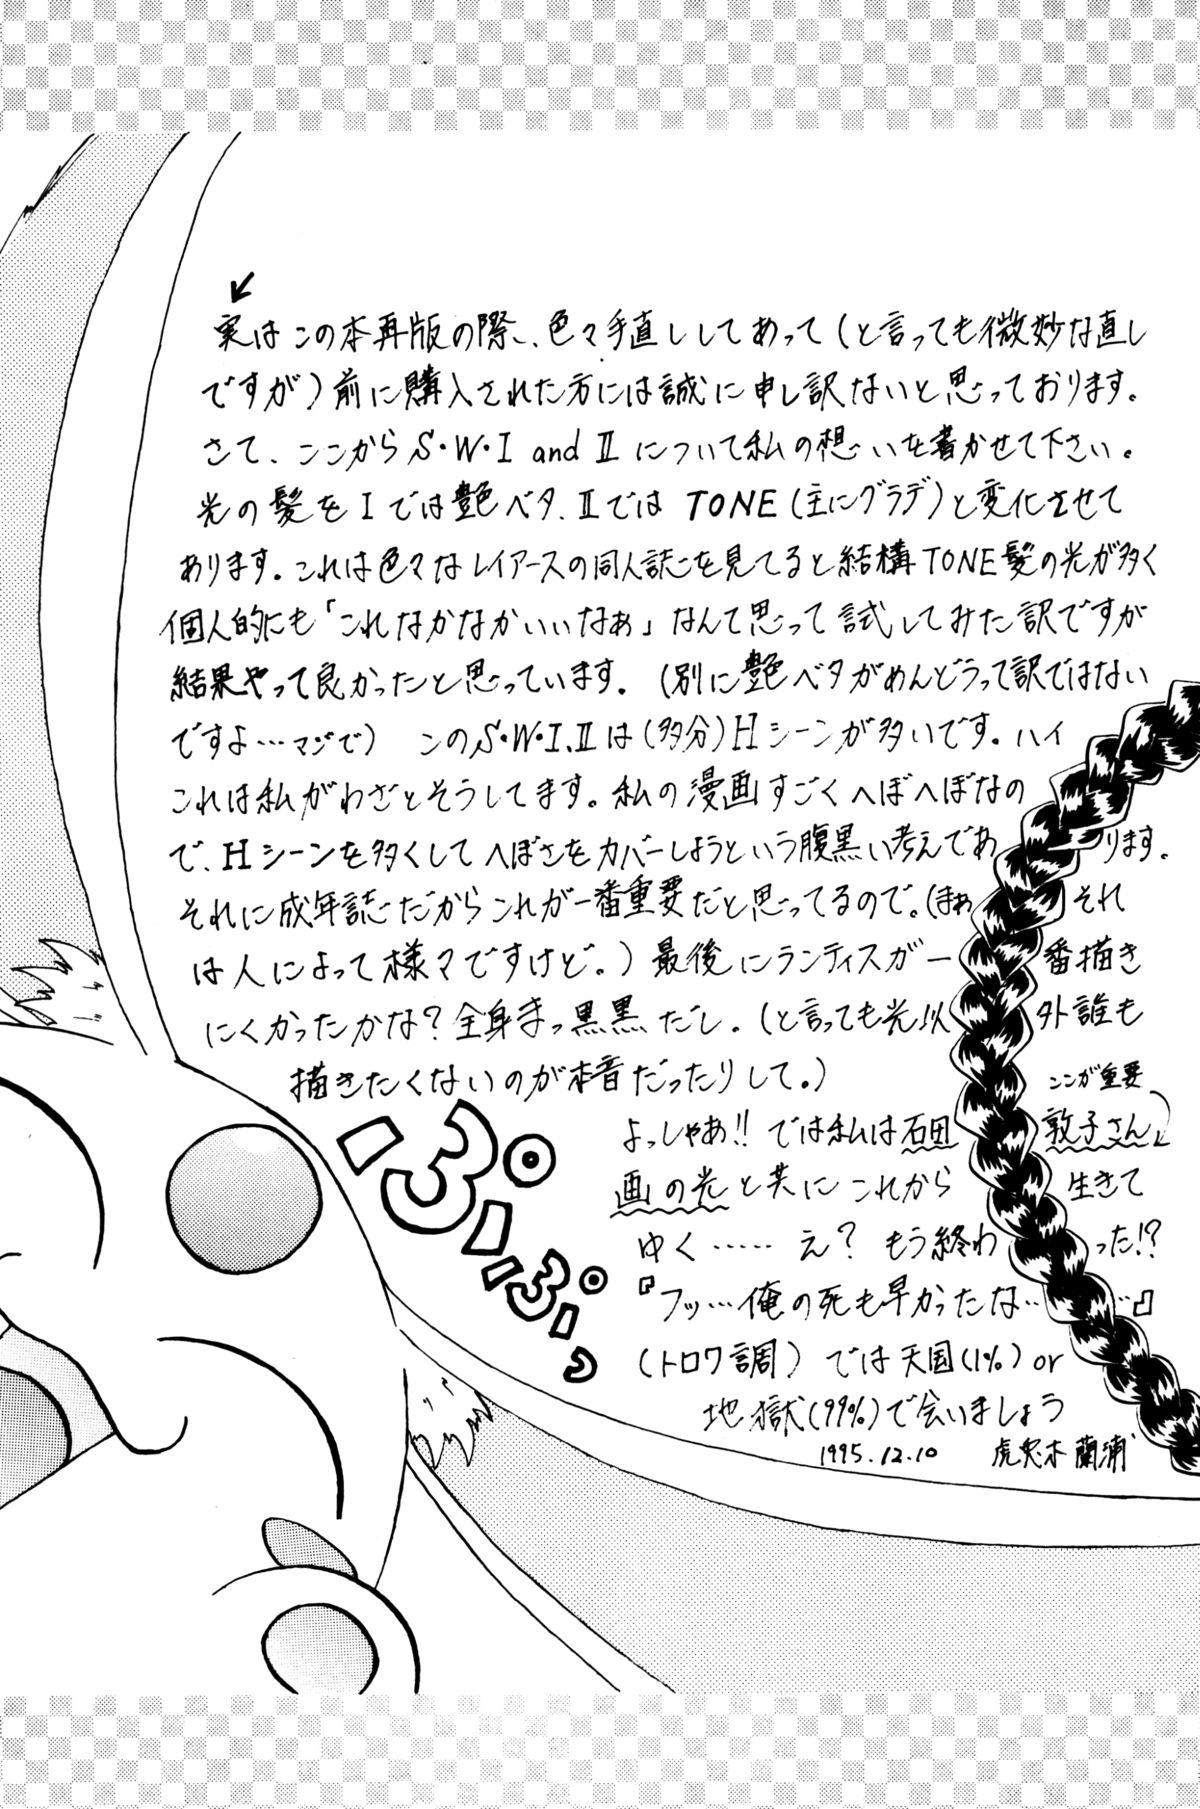 実はこの本再版の際、色々手直ししてあって(と言っても微妙な直し
ですが)前に購入された方には誠に申し訳ないと思っております。
さて、ここからS・W・I and IIについて私の想いを書かせて下さい。
光の髪をIでは艶ベタ、IIではTONE(主にグラデ)と変化させて
あります。これは色々なレイアースの同人誌を見てると結構TONE髪の光が多く
個人的にも「これなかなかいいなぁ」なんて思って試してみた訳ですが
結果やって良かったと思っています。(別に艶ベタがめんどうって訳ではない
ですよ…マジで) このS・W・I、IIは(多分)Hシーンが多いです。ハイ
これは私がわざとそうしてます。私の漫画すごくへぼへぼなの
で、Hシーンを多くしてへぼさをカバーしようという腹黒い考えであります。
それに成年誌だからこれが一番重要だと思ってるので。(まぁそれ
は人によって様々ですけど。)最後にランティスが一番描き
にくかったかな?全身まっ黒黒だし。(と言っても光以外誰も
描きたくないのが本音だったりして。)
ぷぷぷぷっ
ココが重要
よっしゃあ!!では私は石田敦子さん
画の光と共にこれから生きて
ゆく……え?もう終わった!?
『フッ…俺の死も早かったな…』
(トロワ調)では天国(1%)or
地獄(99%)で会いましょう
1995.12.10 虎兎木蘭浦